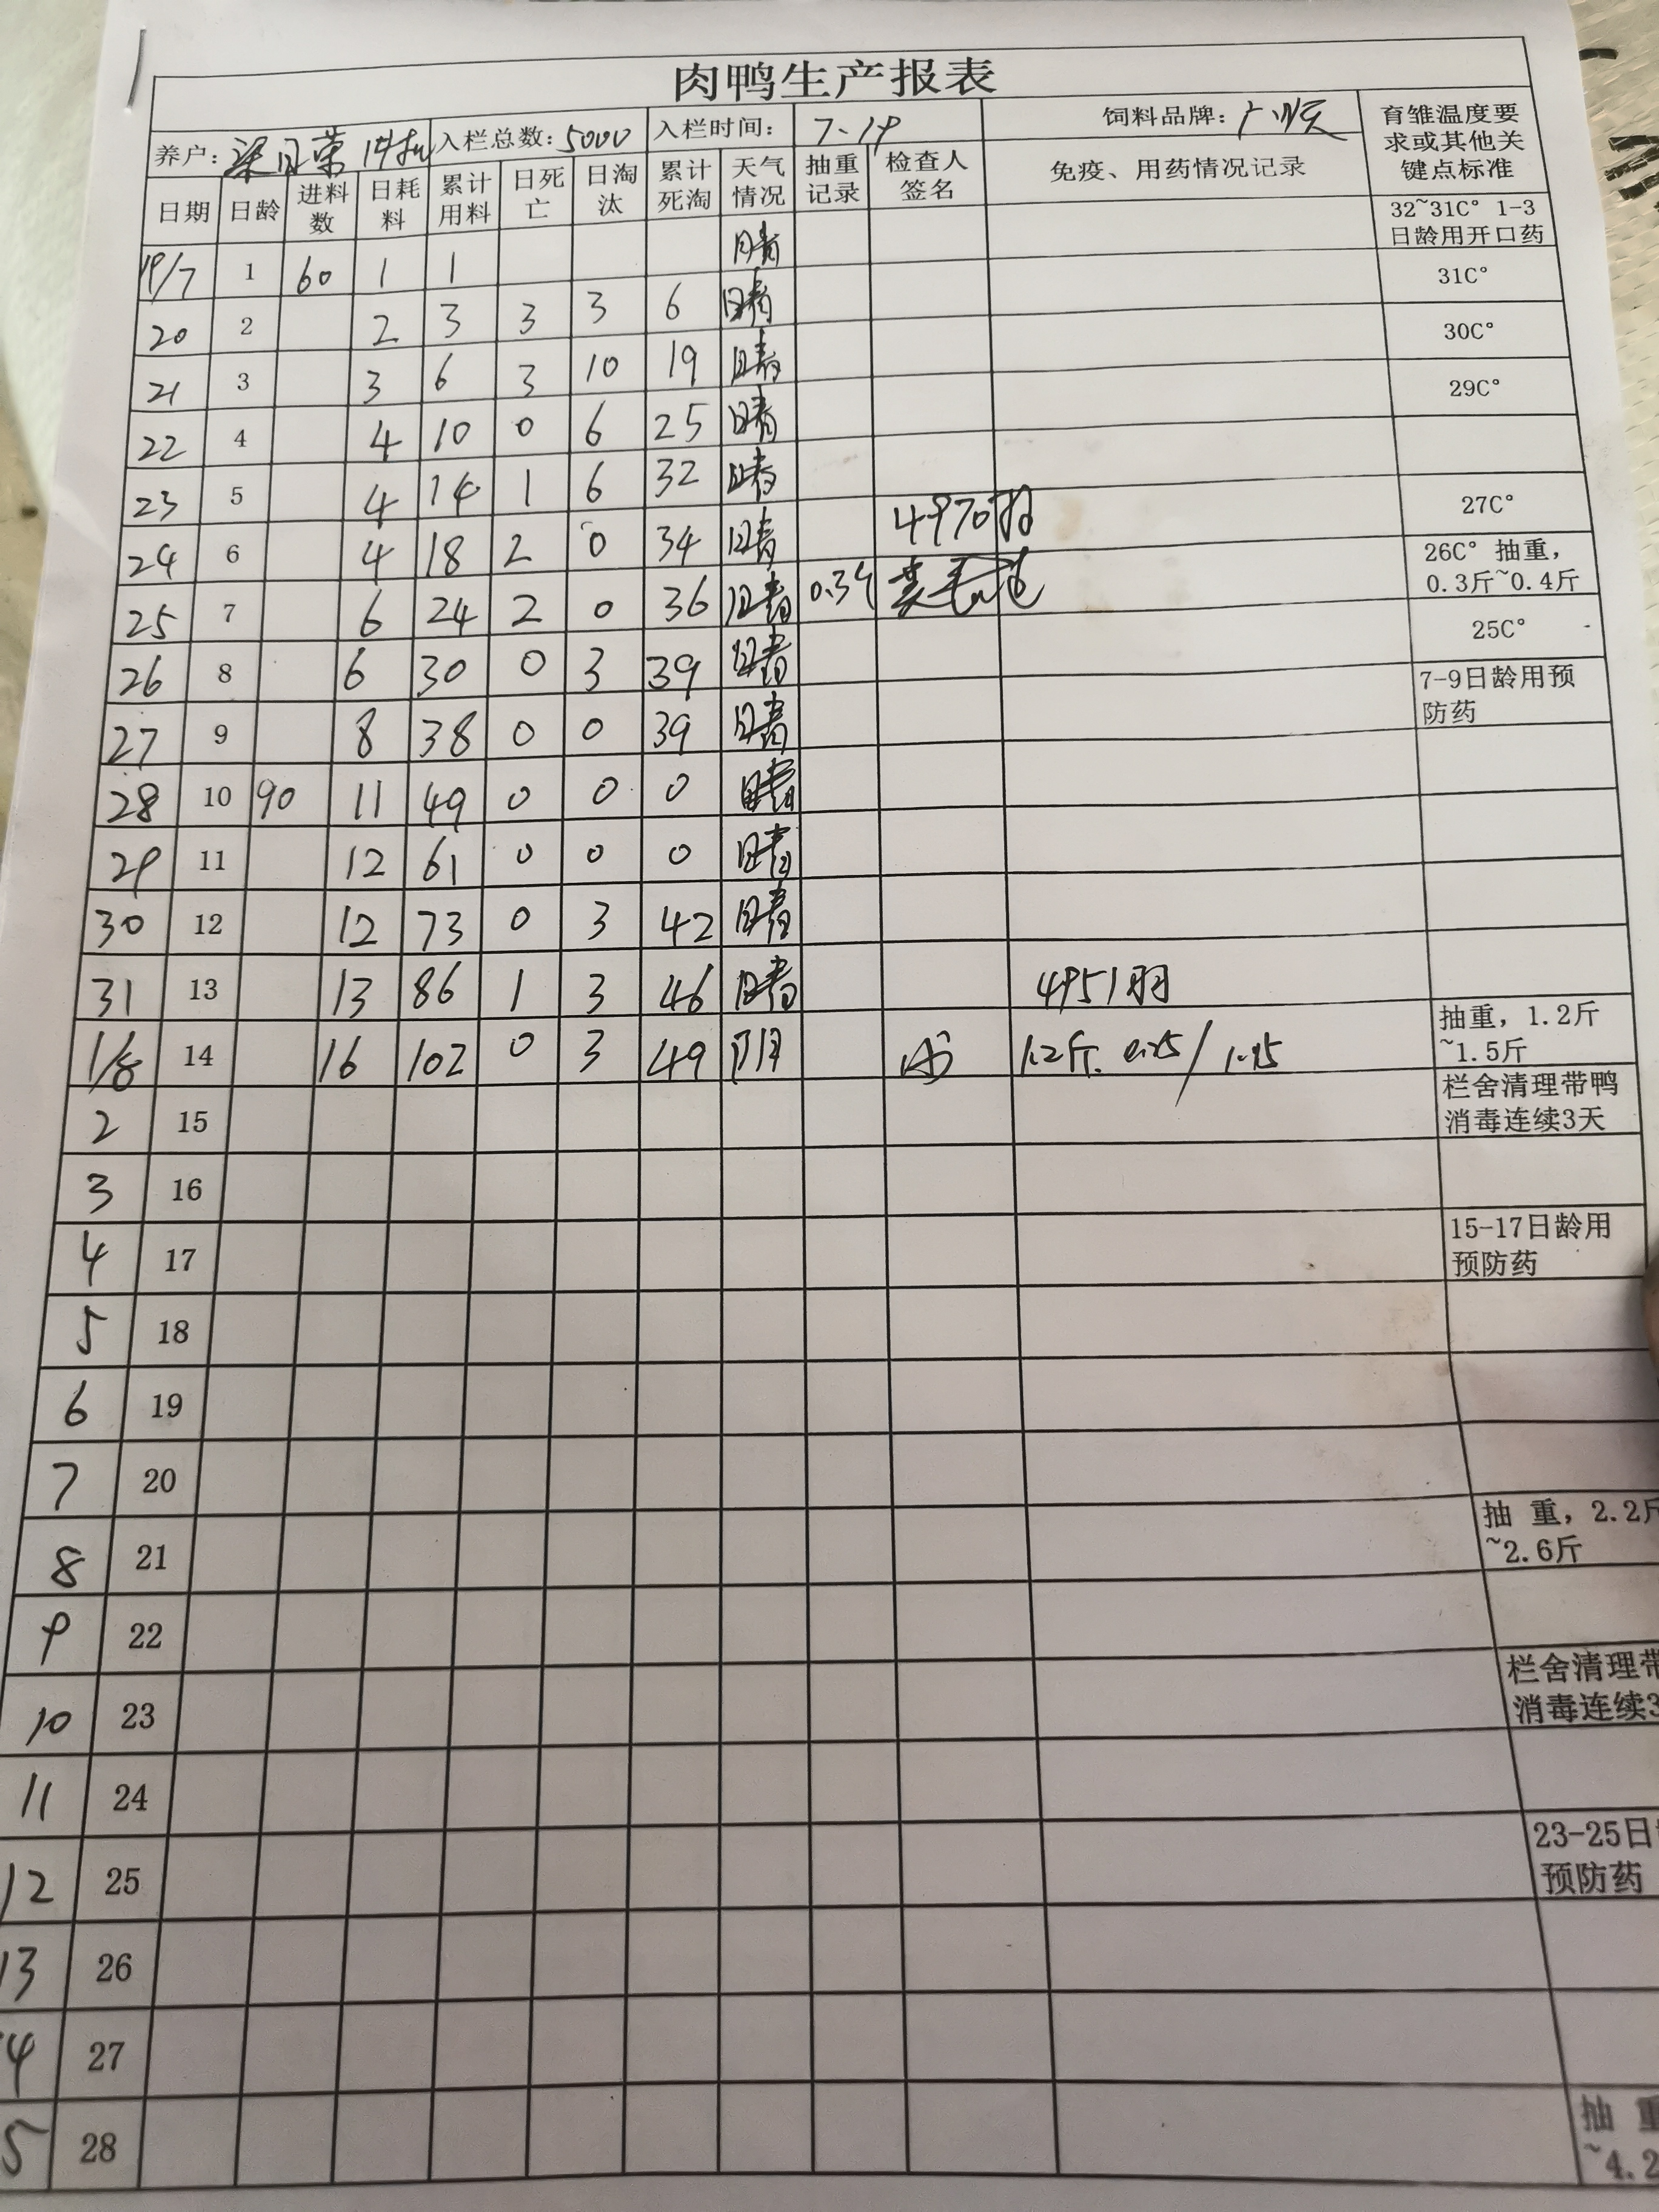 肉鸭生产报表
养户: 梁月荣 入栏总数: 5000 入栏时间: 7-19 饲料品牌: 广顺 育雏温度要求或其他关键点标准
日期 日龄 进料数 日耗料 累计用料 日死亡 日淘汰 累计死淘 天气情况 抽重记录 检查人签名 免疫、用药情况记录
19/7 1 60 1 1 晴 32~31C° 1-3日龄用开口药
20 2 2 3 3 3 6 晴 31C°
21 3 3 6 3 10 19 晴 30C°
22 4 4 10 0 6 25 晴 29C°
23 5 4 14 1 6 32 晴
24 6 4 18 2 0 34 晴 4970羽 27C°
25 7 6 24 2 0 36 晴 26C° 抽重, 0.3斤~0.4斤
26 8 6 30 0 3 39 晴 25C°
27 9 8 38 0 0 39 晴 7-9日龄用预防药
28 10 90 11 49 0 0 0 晴
29 11 12 61 0 0 0 晴
30 12 12 73 0 3 42 晴
31 13 13 86 1 3 46 晴 4951羽
1/8 14 16 102 0 3 49 阴 1.2斤. 抽重, 1.2斤~1.5斤
2 15 栏舍清理带鸭消毒连续3天
3 16
4 17 15-17日龄用预防药
5 18
6 19
7 20
8 21 抽 重, 2.2斤~2.6斤
9 22
10 23 栏舍清理带 消毒连续3
11 24
12 25 23-25日 预防药
13 26
4 27
5 28 抽 重 ~4.2